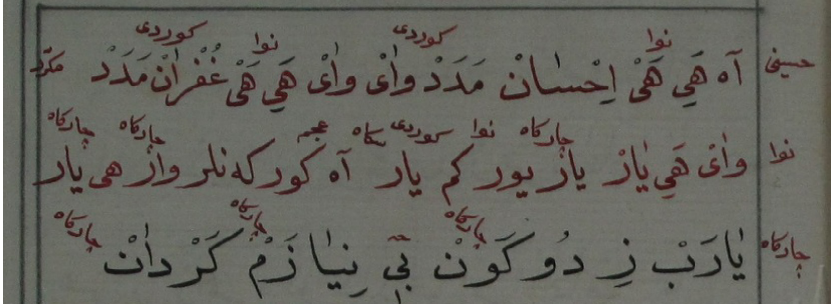 نوا كوردى نوا كوردى
حسينى آه هَىِ هَىْ اِحْسٰانْ مَدَدْ وٰاىْ وٰاىْ هَىِ هَىْ غُفْرٰانْ مَدَدْ مكرّر
چارکاه نوا كوردى سكاه عجم چارکاه چارکاه
نوا وٰاىْ هَىِ يٰارْ يازيور كم يار آه كوركه نلر وارْ هى يار
چارکاه چارکاه چارکاه
چارکاه يٰارَبْ زِ دُو كَوَنْ بىّ نِيٰازَمْ كَرْدٰانْ